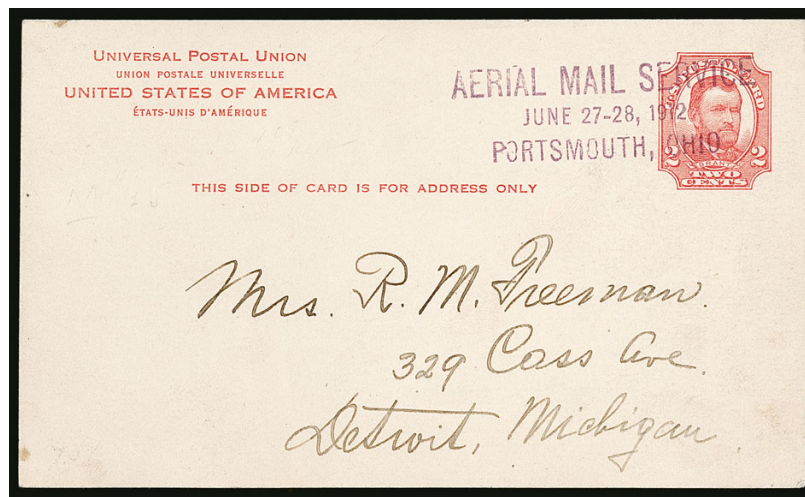 UNIVERSAL POSTAL UNION
UNION POSTALE UNIVERSELLE
UNITED STATES OF AMERICA
ÉTATS-UNIS D'AMÉRIQUE
AERIAL MAIL SERVICE
JUNE 27-28, 1912
PORTSMOUTH, OHIO
U.S. POSTAL CARD
2 GRANT 2
TWO
CENTS
THIS SIDE OF CARD IS FOR ADDRESS ONLY
Mrs. R. M. Freeman.
329 Cass Ave.
Detroit, Michigan